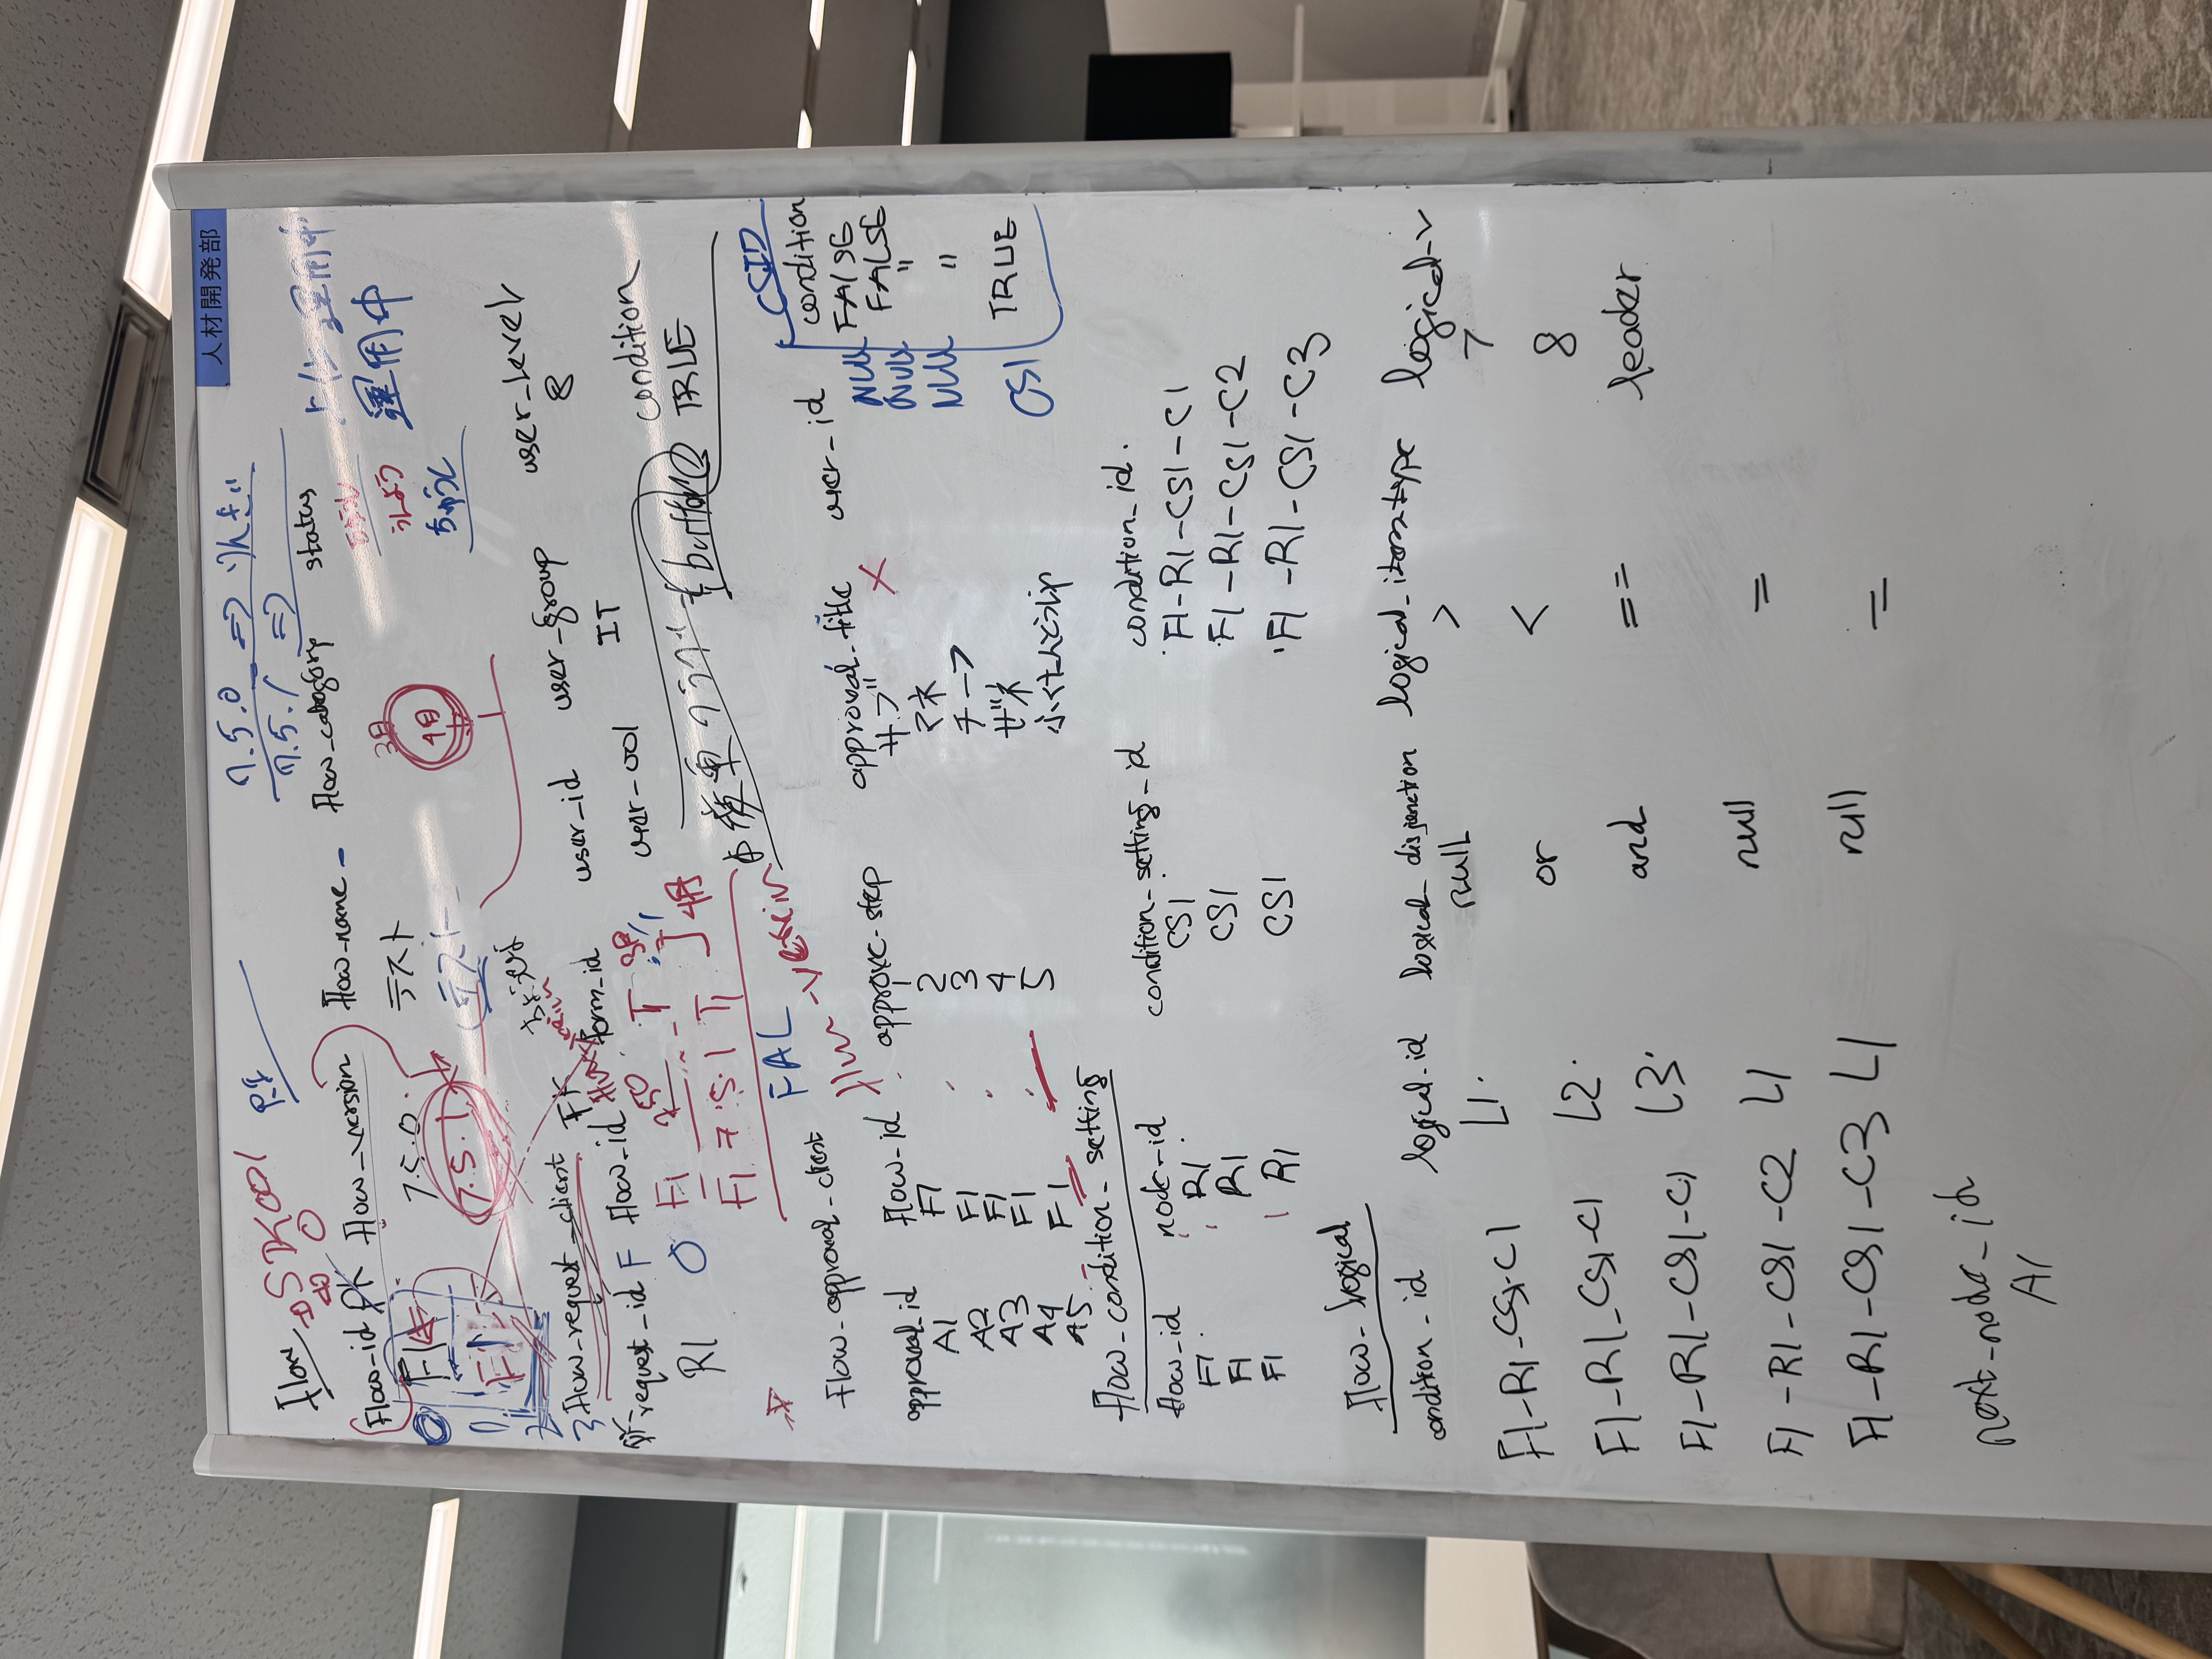 人材開発部
7.5.0 =>
7.5.1 =>
flow
flow_id PK flow_version flow_name flow_category status
F1 7.5.0 テスト 3月 運用中
F1 7.5.1 テスト 4月 ちゅうし
0
1
2
3 flow_request_client FK
request_id F flow_id form_id user_id user_group user_level
R1 0 F1 750 T user-001 IT 8
F1 7.5.1 T1 4月
変更フラグ button condition
TRUE
FAL
flow-version
CSID
flow_approval_client
approval_id flow_id approve-step approval_title user_id condition
A1 F1 1 サブ NULL FALSE
A2 F1 2 マネ NULL FALSE
A3 F1 3 チーフ NULL "
A4 F1 4 ゼネ "
A5 F1 5 CS1 TRUE
flow_condition_setting
flow_id node_id condition_setting_id condition_id
F1 R1 CS1 F1-R1-CS1-C1
F1 R1 CS1 F1-R1-CS1-C2
F1 R1 CS1 F1-R1-CS1-C3
flow_logical
condition_id logical_id logical_disjunction logical_item_type logical_v
F1-R1-CS1-C1 L1 null > 7
F1-R1-CS1-C1 L2 or < 8
F1-R1-CS1-C1 L3 and == leader
F1-R1-CS1-C2 L1 null =
F1-R1-CS1-C3 L1 null =
next_node_id
A1